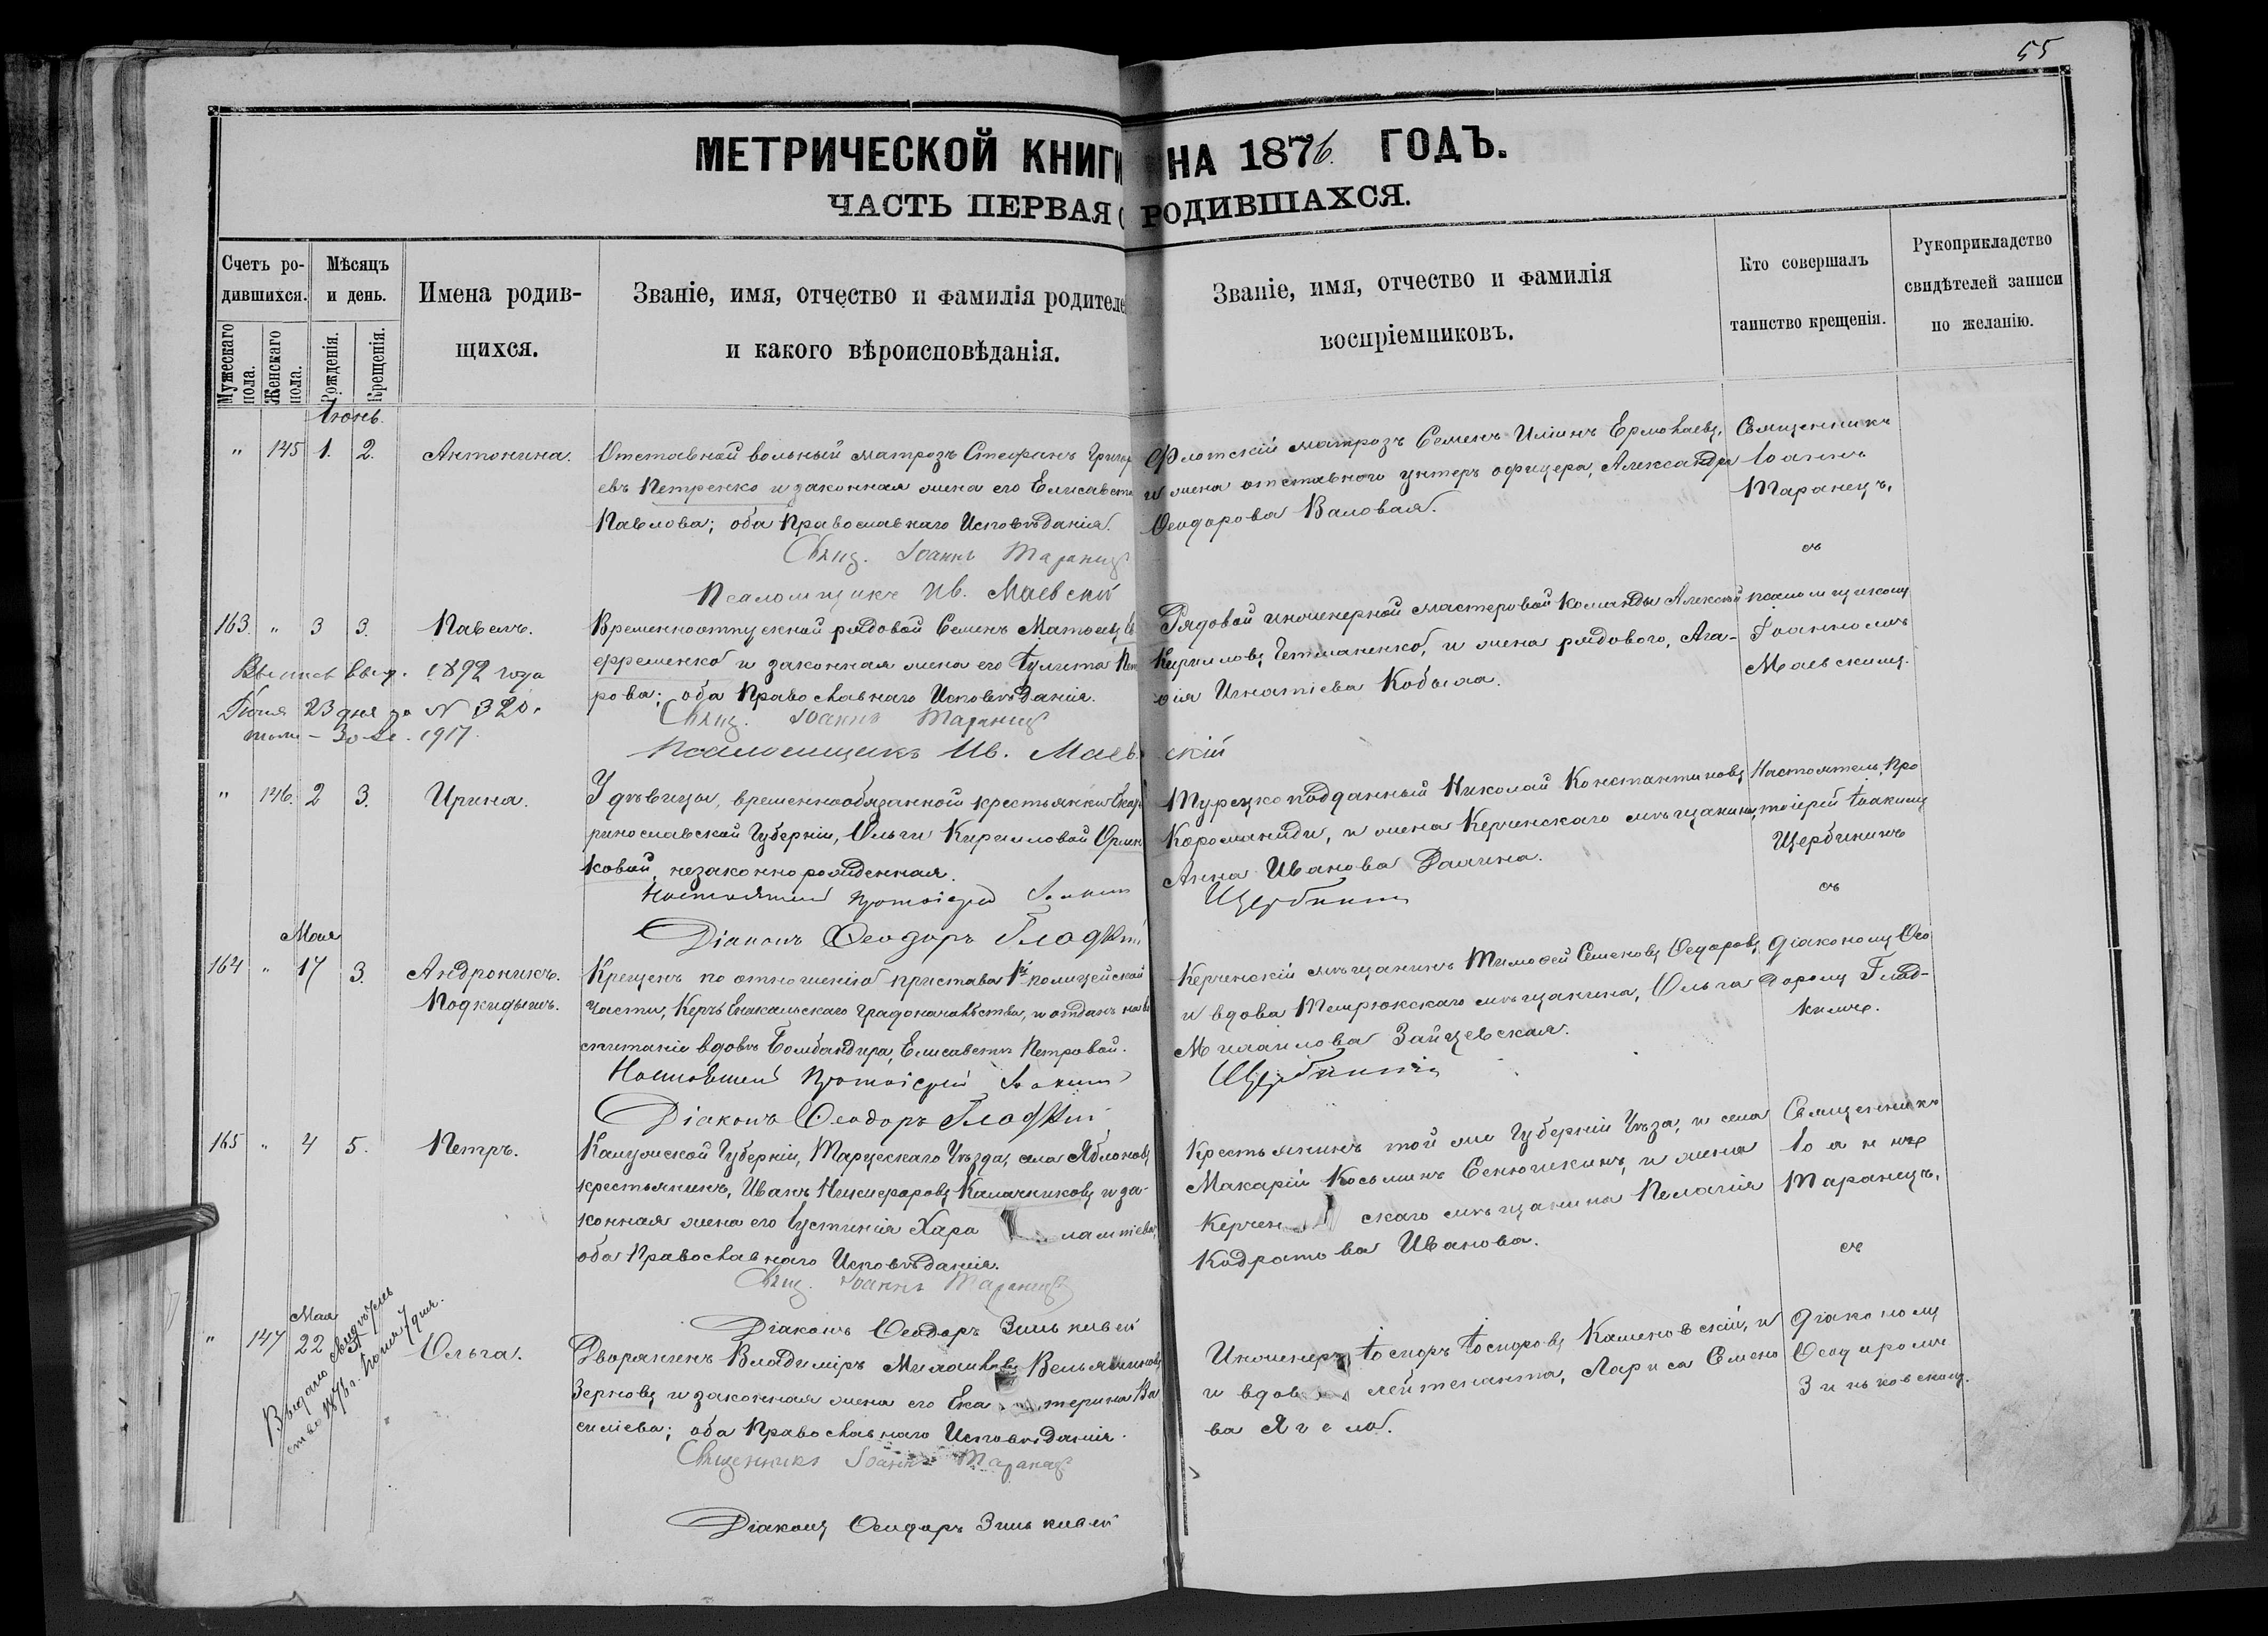 55
МЕТРИЧЕСКОЙ КНИГИ НА 1876. ГОДЪ.
ЧАСТЬ ПЕРВАЯ О РОДИВШИХСЯ.
Счетъ ро-
дившихся.
Мужескаго пола.
Женскаго пола.
Мѣсяцъ
и день.
Рожденія.
Крещенія.
Имена родив-
шихся.
Званіе, имя, отчество и фамилія родителе
и какого вѣроисповѣданія.
Званіе, имя, отчество и фамилія
воспріемниковъ.
Кто совершалъ
таинство крещенія.
Рукоприкладство
свидѣтелей записи
по желанію.
Іюнь.
" 145 1. 2. Антонина.
Отставной вольный матрозъ Стефанъ Григор
евъ Петренко и законная жена его Елисавета
Павлова; оба Православнаго Исповѣданія.
Свящ. Іоаннъ Таранец
Псаломщикъ Ив. Маевскій
Флотскій матрозъ Семенъ Иліинъ Ермолаевъ,
и жена отставного унтеръ офицера, Александра
Ѳеодорова Валовая.
Священникъ
Іоаннъ
Таранецъ,
съ
163. " 3 3. Павелъ.
1892 года
23 дня за № 320.
1917.
Временноотпускной рядовой Семенъ
и законная жена его Іулита Пет
рова; оба Православнаго Исповѣданія.
Свящ. Іоаннъ Таранец
Псаломщикъ Ив. Маевскій
Рядовой инженерной мастеровой команды Алексѣй
Кирилловъ Гетманенко, и жена рядового, Ага-
ѳія Игнатіева Кобыла.
псаломщикомъ
Іоанномъ
Маевскимъ.
" 146. 2 3. Ирина.
У дѣвицы, временнообязанной крестьянки Екате
ринославской Губерніи, Ольги Кирилловой
ковой, незаконнорожденная.
Настоятель Протоіерей Іоаким Щербинин
Діаконъ Ѳеодоръ Гладкій
Турецкоподданный Николай Константиновъ
Короманиди, и жена Керченскаго мѣщанина,
Анна Иванова
Настоятель, Про
тоіерей Іоакимъ
Щербининъ
съ
Мая
164 " 17 3. Андроникъ.
Подкидышъ.
Крещенъ по отношенію пристава 1й полицейской
части, Керчь Еникальскаго Градоначальства, и отданъ на во
спитаніе вдовѣ Бомбандира, Елисаветѣ Петровой.
Настоятель Протоіерей Іоаким Щербинин
Діаконъ Ѳеодоръ Гладкій
Керченскій мѣщанинъ Тимоѳей Семеновъ Ѳедоровъ,
и вдова Темрюкскаго мѣщанина, Ольга
Михаилова Зайцевская.
діакономъ Ѳео
доромъ Глад-
кимъ.
165 " 4 5. Петръ.
Калужской Губерніи, Тарусскаго Уѣзда, села Яблоновъ
крестьянинъ, Иванъ Никифоровъ Калачниковъ и за-
конная жена его Іустинія Хара лампіева;
оба Православнаго Исповѣданія.
Свящ. Іоаннъ Таранец
Діаконъ Ѳеодоръ
Крестьянинъ той же Губерніи Уѣзда, и села
Макарій Косьминъ Сенюшкинъ, и жена
Керчен скаго мѣщанина Пелагія
Кодратова Иванова.
Священникъ
Іоаннъ
Таранецъ,
съ
Мая
" 147 22 Ольга.
Выдано свидѣтель
ство 1876 г. Іюня 7 дня.
Дворянинъ Владиміръ Михаиловъ Вельяминовъ
Зерновъ, и законная жена его Ека терина Ва
силіева; оба Православнаго Исповѣданія.
Священникъ Іоаннъ Таранец
Діаконъ Ѳеодоръ
Инженеръ, Іосифъ Іосифовъ Каменовскій, и
и вдова лейтенанта, Лариса Семено
ва
діакономъ
Ѳеодоромъ
Зиньковскимъ.